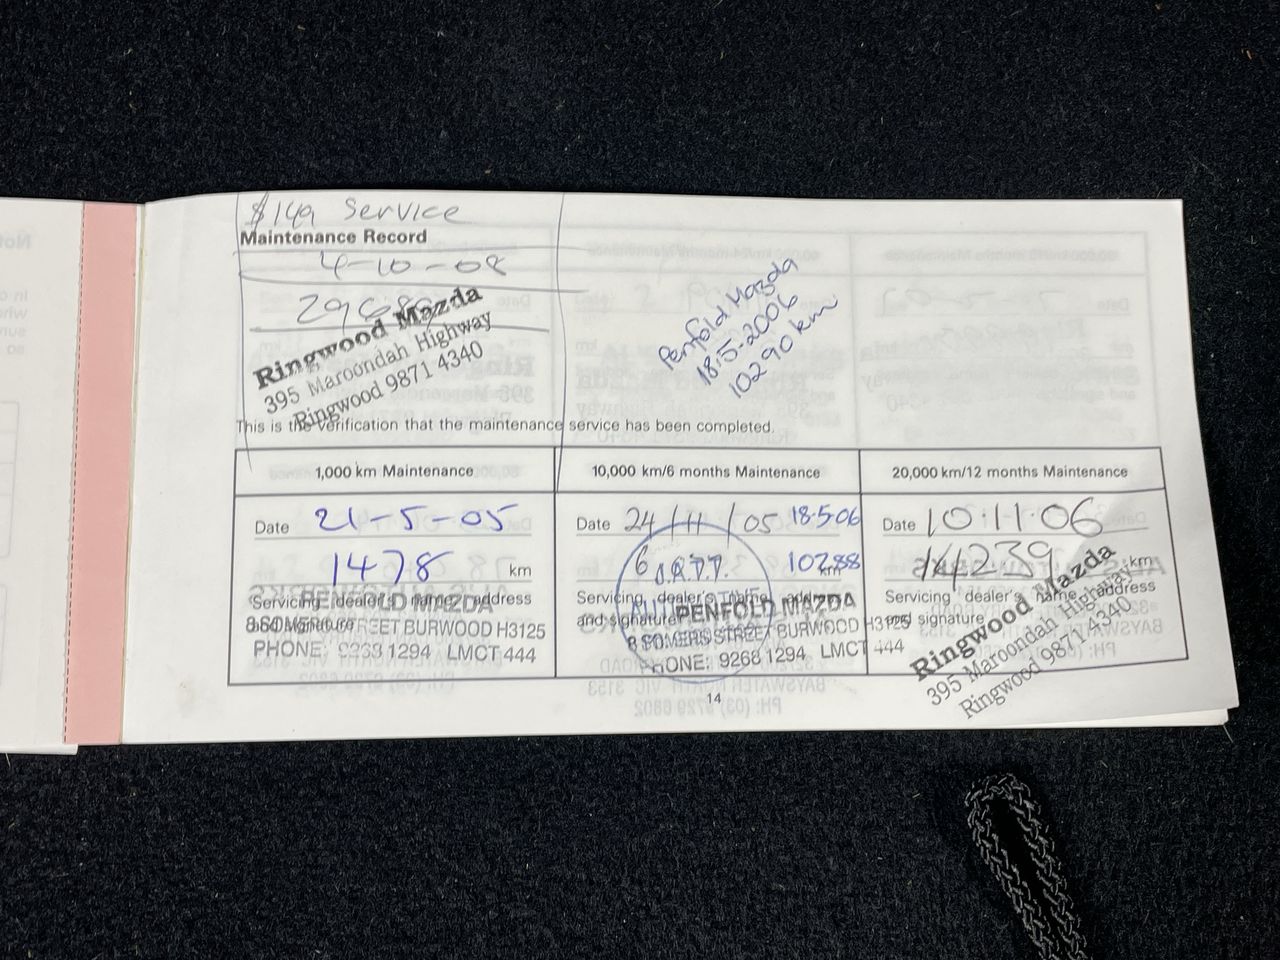 $149 Service
Maintenance Record
4-10-08
Ringwood Mazda
395 Maroondah Highway
Ringwood 9871 4340
Penfold Mazda
18·5·2006
10290 km
This is the verification that the maintenance service has been completed.
1,000 km Maintenance
Date 21-5-05
1478 km
Servicing dealer's name, address
and signature
PENFOLD MAZDA
8 SOMERS STREET BURWOOD H3125
PHONE: 9268 1294 LMCT 444
10,000 km/6 months Maintenance
Date 24/11/05 18·5·06
10288 km
Servicing dealer's name, address
and signature
PENFOLD MAZDA
8 SOMERS STREET BURWOOD H3125
PHONE: 9268 1294 LMCT 444
20,000 km/12 months Maintenance
Date 10·11·06
14239 km
Servicing dealer's name, address
and signature
Ringwood Mazda
395 Maroondah Highway
Ringwood 9871 4340
14